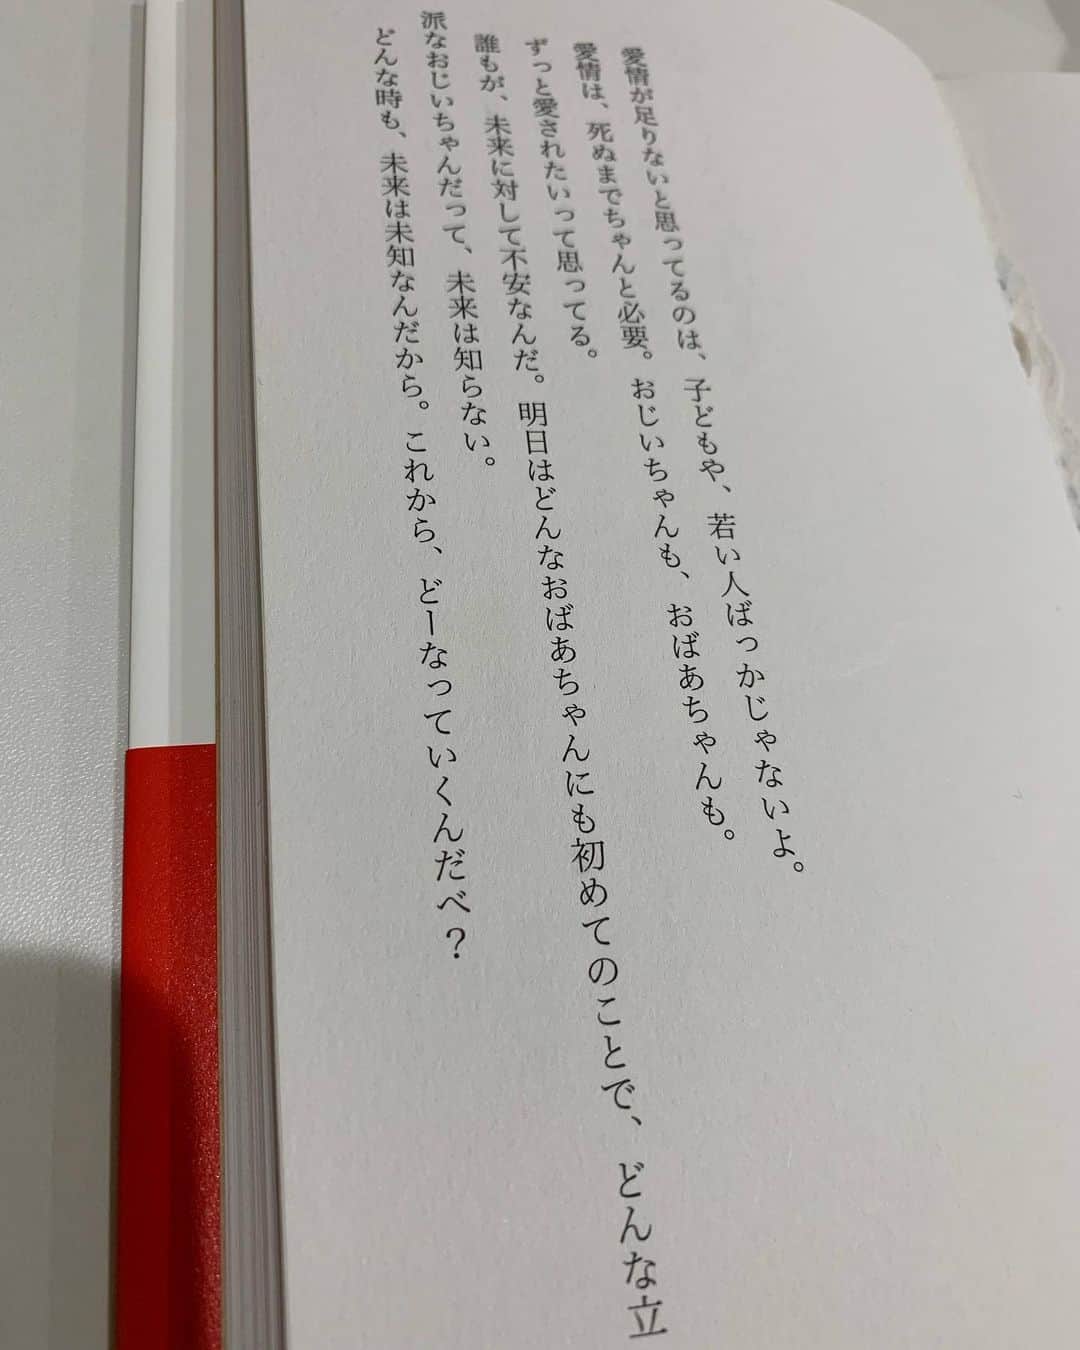 愛情が足りないと思ってるのは、子どもや、若い人ばっかじゃないよ。
愛情は、死ぬまでちゃんと必要。おじいちゃんも、おばあちゃんも。
ずっと愛されたいって思ってる。
誰もが、未来に対して不安なんだ。明日はどんなおばあちゃんにも初めてのことで、どんな立
派なおじいちゃんだって、未来は知らない。
どんな時も、未来は未知なんだから。これから、どーなっていくんだべ？